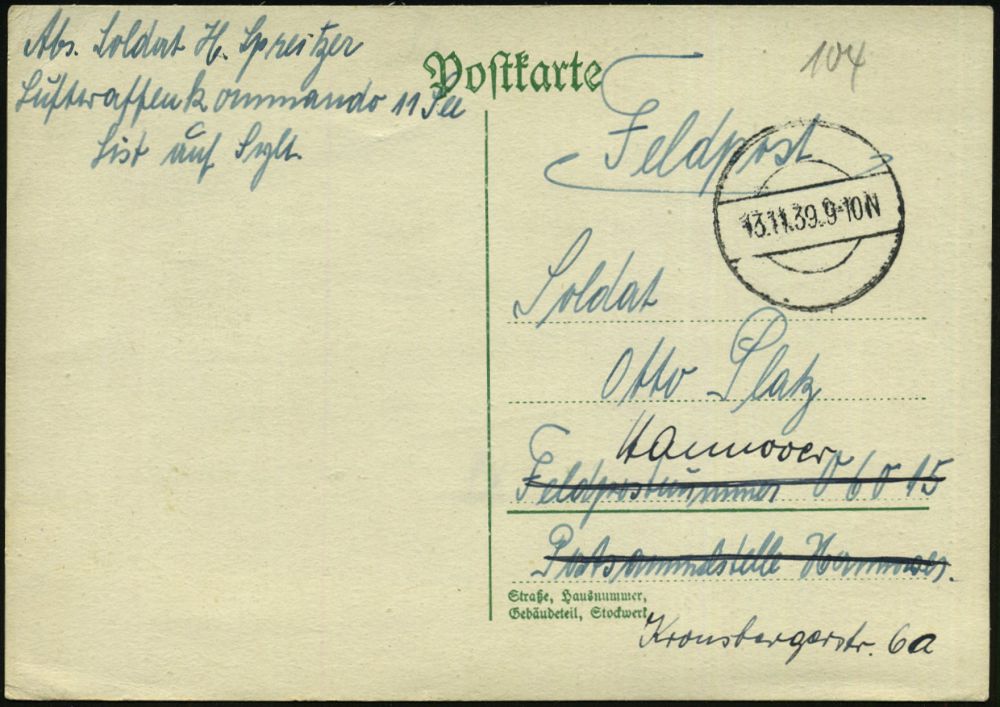 Abs. Soldat H. Spreitzer
Luftwaffenkommando 11 See
List auf Sylt.
Postkarte
104
Feldpost
13.11.39.9-10N
Soldat
Otto Platz
Hannover
Feldpostnummer 06015
Postsammelstelle Hannover.
Straße, Hausnummer,
Gebäudeteil, Stockwerk
Kronsbergerstr. 6a